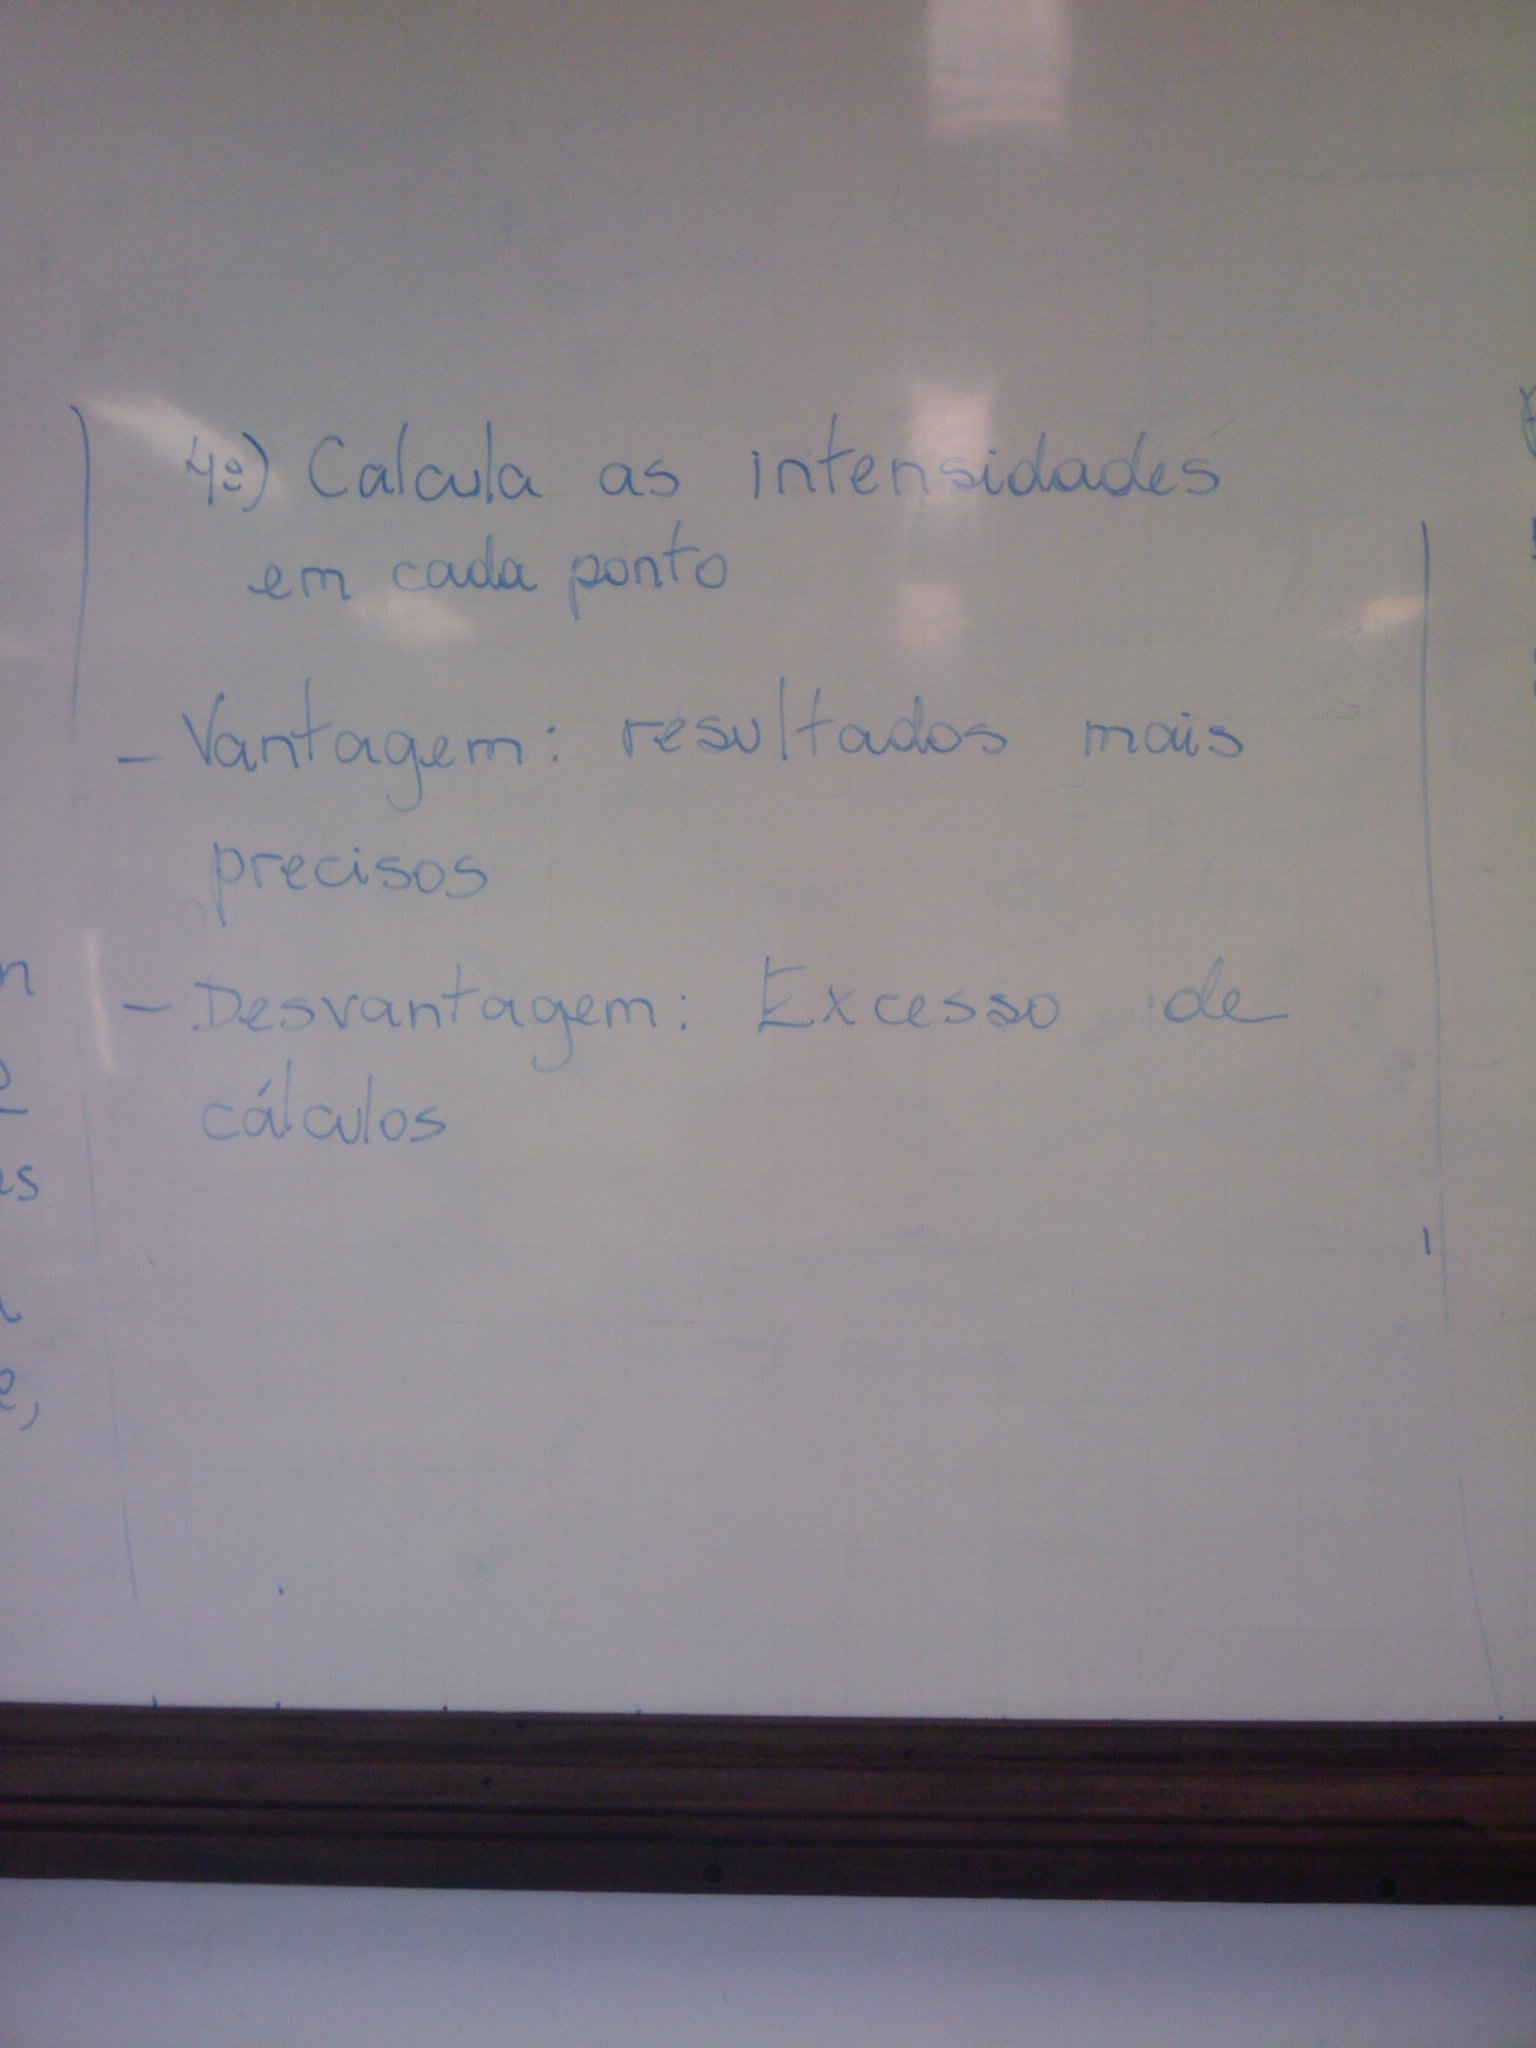 4º) Calcula as intensidades
em cada ponto
- Vantagem: resultados mais
precisos
- Desvantagem: Excesso de
cálculos